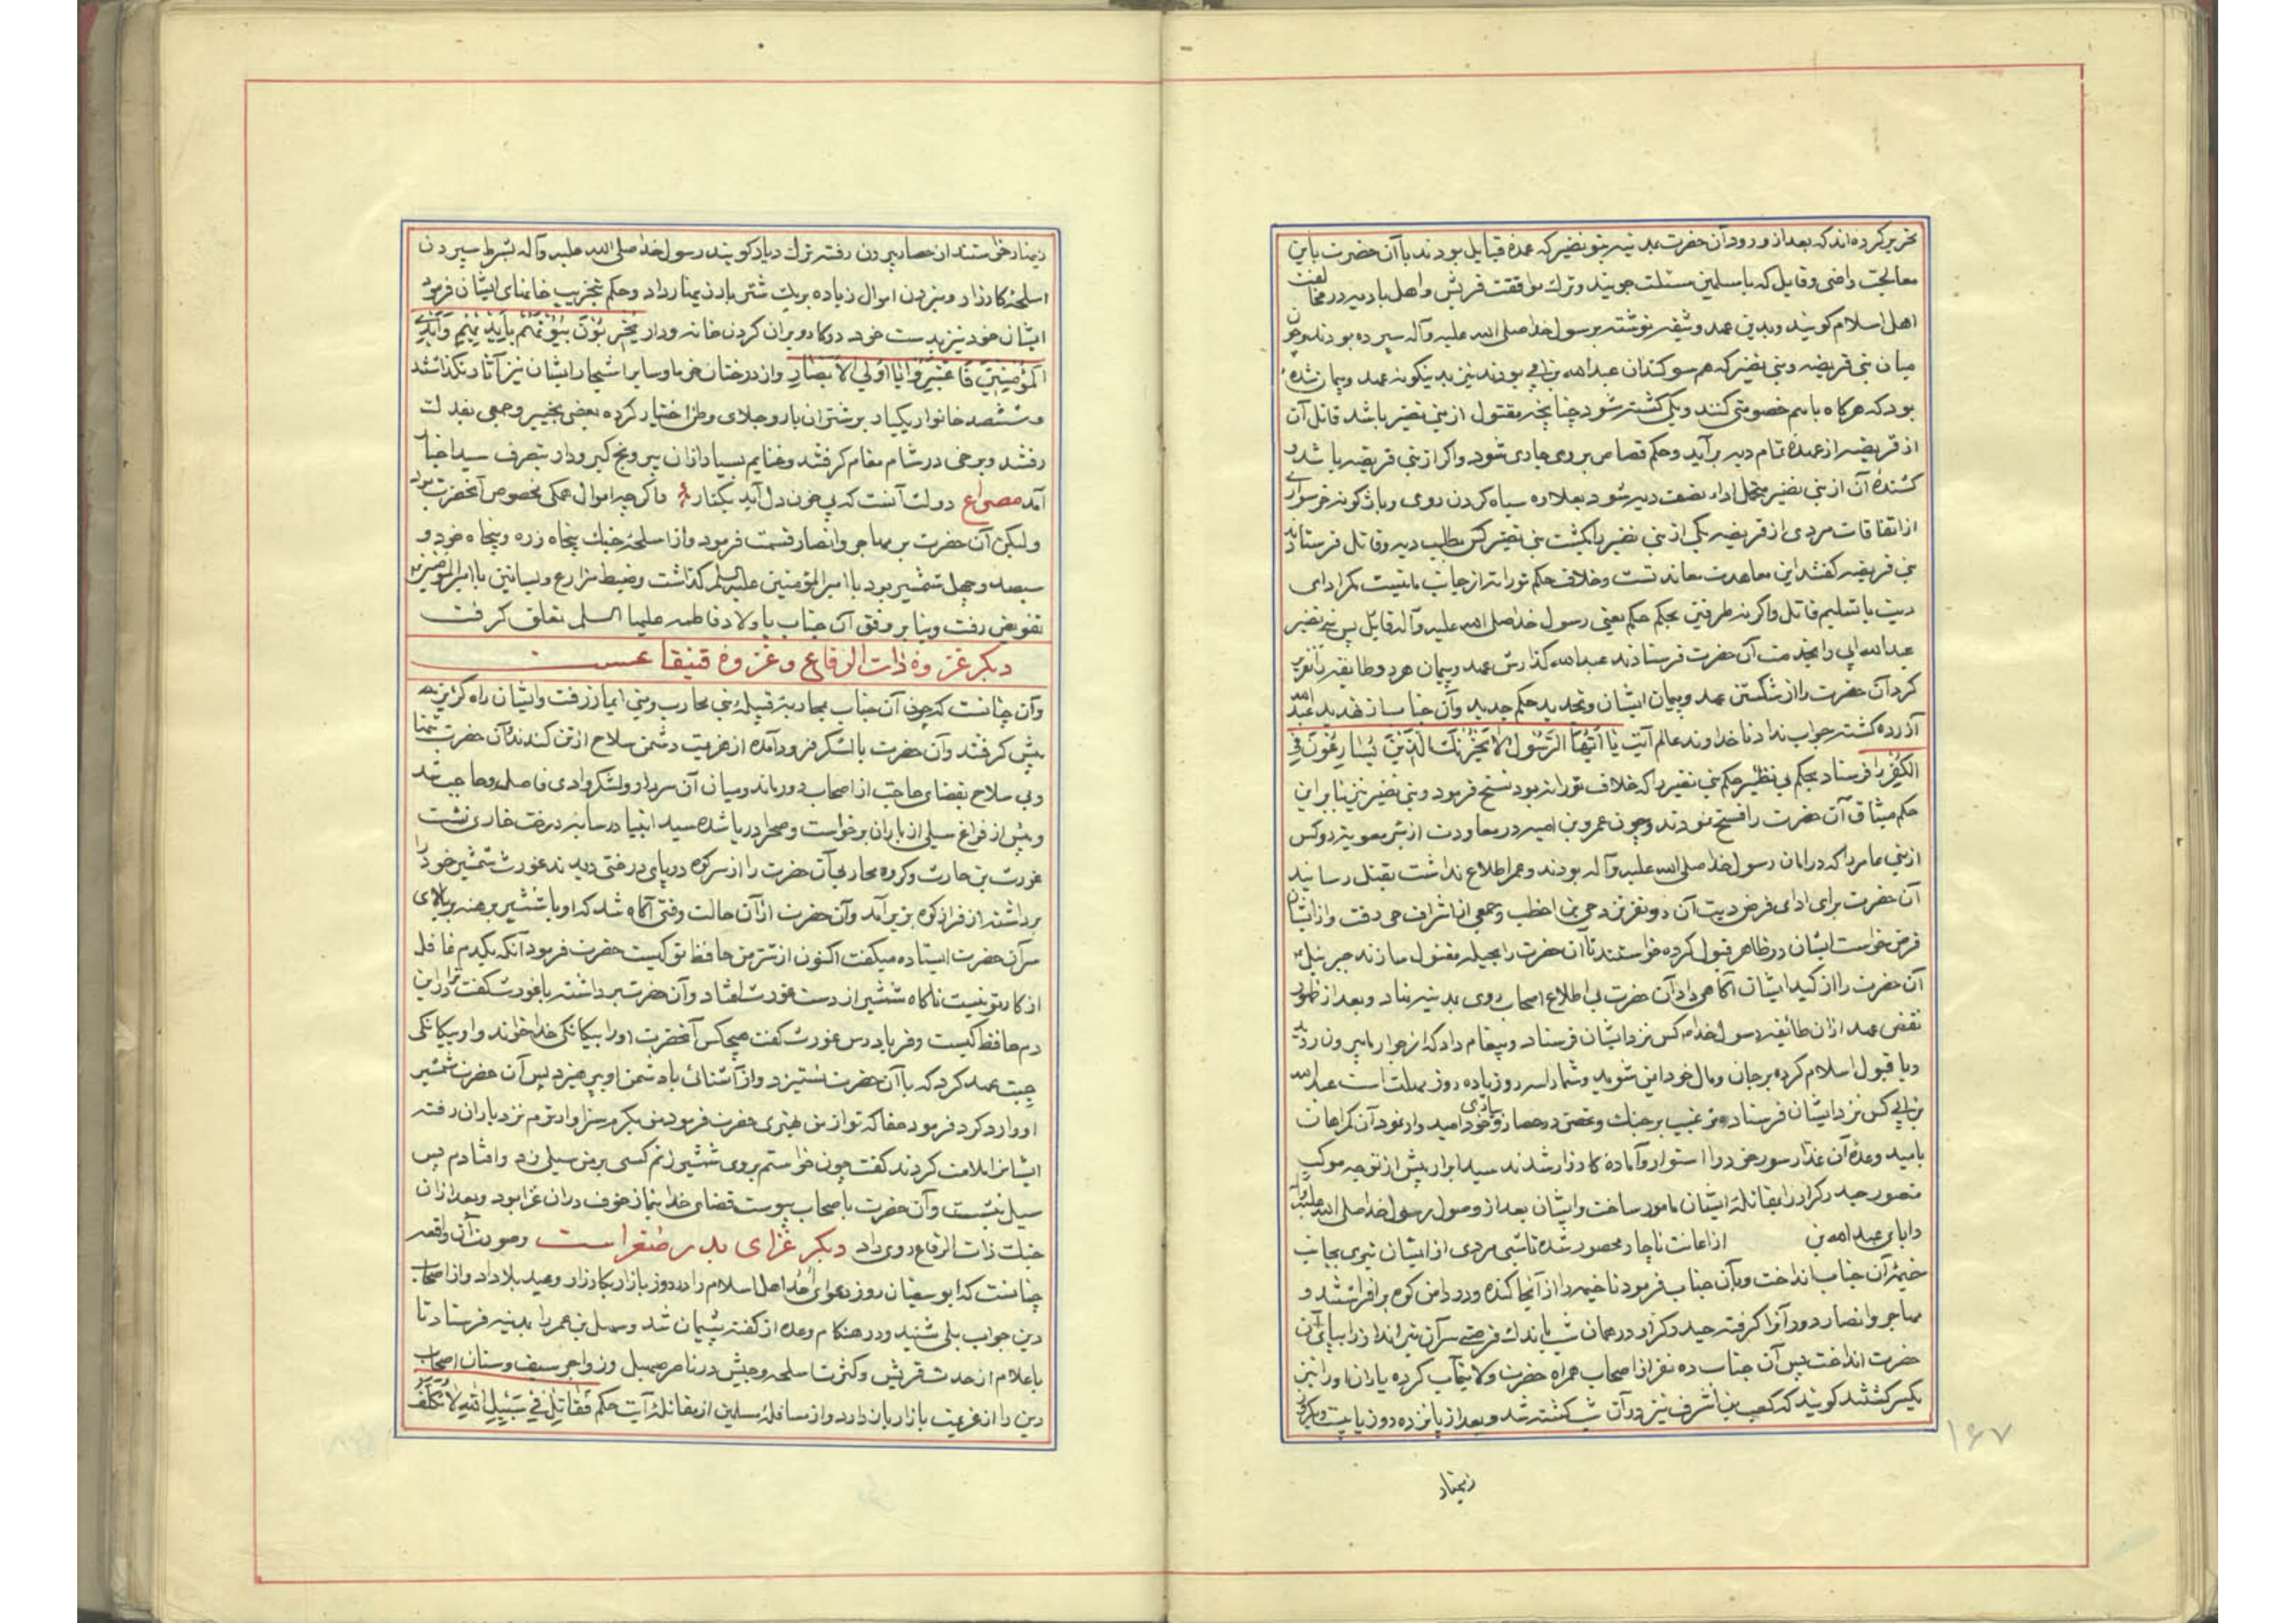 تحریر کرده‌اند که بعد از ورود آن حضرت بمدینه بنو نضیر که عمدهٔ قبایل بودند با آن حضرت باین
معالجت راضی و قایل که با مسلمین مسئلت جویند و ترک موافقت قریش و اهل بادیه در مخالفت
اهل اسلام کویند و بدین عهد وثیقه نوشته برسول خدا صلی الله علیه وآله سپرده بودند و چون
میان بنی قریضه و بنی نضیر که هم سوکندان عبدالله بن ابی بودند نیز بدینکونه عهد و پیمان شده
بود که هر کاه با هم خصومتی کنند و یکی کشته شود چنانچه مقتول از بنی نضیر باشد قاتل آن
از قریضه از عهدهٔ تمام دیه برآید و حکم قصاص بروی جاری شود و اکر از بنی قریضه باشد و
کشندهٔ آن از بنی نضیر متحمل اداء نصف دیه شود بعلاوه سیاه کردن روی و باژکونه خر سواری
از اتفاقات مردی از قریضه یکی از بنی نضیر را بکشت بنی نضیر کس بطلب دیه و قاتل فرستادند
بنی قریضه کفتند این معاهدت معاندتست و خلاف حکم تورات از جانب ما نیست مکر ادای
دیت یا تسلیم قاتل و اکر نه طرفین بحکم حکم یعنی رسول خدا صلی الله علیه وآله قایل پس بنی نضیر
عبدالله ابی را بخدمت آن حضرت فرستادند عبدالله کذارش عهد و پیمان هر دو طایفه را تقریر
کرد آن حضرت را از شکستن عهد و پیمان ایشان و تجدید حکم جدید و آن جناب از تهدید عبدالله
آزرده کشته جواب نداد تا خداوند عالم آیت یا أیها الرسول لا یحزنک الذین یسارعون فی
الکفر را فرستاد بحکم بی نظیر حکم بنی نضیر را که خلاف تورات بود نسخ فرمود و بنی نضیر نیز بنا بر این
حکم میثاق آن حضرت را فسخ نمودند و چون عمرو بن امیه در معاودت از بئر معویه دو کس
از بنی عامر را که در امان رسول خدا صلی الله علیه وآله بودند و عمر اطلاع نداشت بقتل رسانید
آن حضرت برای ادای قرض دیت آن دو نفر نزد حی بن اخطب و جمعی از اشراف حی رفت و از ایشان
قرض خواست ایشان در ظاهر قبول کرده خواستند تا آن حضرت را بحیله مقتول سازند جبرئیل
آن حضرت را از کید ایشان آکاهی داد آن حضرت بی اطلاع اصحاب روی بمدینه نهاد و بعد از ظهور
نقض عهد از آن طائفه رسول خدا م کس نزد ایشان فرستاد و پیغام داد که از جوار ما بیرون روید
و یا قبول اسلام کرده بر جان و مال خود ایمن شوید و شما را سه روز یا ده روز مهلت است عبدالله
بن ابی کس نزد ایشان فرستاده ترغیب بر جنک و تحصن در حصار و خود امیدوار نمود آن کمراهان
بامید وعدهٔ آن غدار سور خود را استوار و آمادهٔ کارزار شدند سید ابرار پیش از توجه موکب
منصور حیدر کرار را بمقاتلهٔ ایشان مامور ساخت و ایشان بعد از وصول رسول خدا صلی الله علیه وآله
و ابای عبدالله بن از اعانت ناچار محصور شده تا شبی مردی از ایشان تیری بجانب
خیمهٔ آن جناب انداخت و بآن جناب فرمود تا خیمه را از آنجا کنده و در دامن کوه برافراشتند و
مهاجر و انصار دور آنرا کرفته حیدر کرار در همان شب باندک فرصتی سر آن تیرانداز را بپای آن
حضرت انداخت پس آن جناب ده نفر از اصحاب همراه حضرت ولایتمآب کرده یاران او را نیز
یکسر کشتند کویند که کعب بن اشرف نیز در آن شب کشته شد و بعد از پانزده روز یا بیست و یکروز
زینهار
۱۶۷
زینهار خواستند از حصار بیرون رفته ترک دیار کویند رسول خدا صلی الله علیه وآله بشرط سپردن
اسلحهٔ کارزار و نبردن اموال زیاده بریک شتر بار زینهار داد و حکم بتخریب خانهای ایشان فرمود
ایشان خود نیز بدست خود در کار ویران کردن خانه و دار یخربون بیوتهم بأیدیهم وأیدی
المؤمنین فاعتبروا یا اولی الأبصار و از درختان خرما و سایر اشجار ایشان نیز آثار نکذاشتند
و ششصد خانوار یکبار بر شتران بار و جلای وطن اختیار کرده بعضی بخیبر و جمعی بفدک
رفتند و برخی در شام مقام کرفتند و غنایم بسیار از آن بی رنج کیر و دار بتصرف سید اخیار
آمد مصراع دولت آنست که بی خون دل آید بکنار و اکرچه اموال همکی مخصوص آنحضرت بود
ولیکن آن حضرت بر مهاجر و انصار قسمت فرمود و از اسلحهٔ جنک پنجاه زره و پنجاه خود و
سیصد و چهل شمشیر بود با امیرالمؤمنین علیه السلم کذاشت و ضبط مزارع و بساتین با امیرالمؤمنین
تفویض رفت و بنا بر وفق آن جناب باولاد فاطمه علیها السلم تعلق کرفت
دیکر غزوه ذات الرقاع و غزوه قنیقاعست
و آن چنانست که چون آن جناب بمحاربهٔ قبیلهٔ بنی محارب و بنی انمار رفت و ایشان راه کریز
پیش کرفتند و آن حضرت با لشکر فرود آمده از عزیمت دشمن سلاح از تن کندند آن حضرت تنها
و بی سلاح بقضای حاجت از اصحاب دور ماند و میان آن سردار و لشکر وادی فاصل و حاجب شد
و پس از فراغ سیلی از باران برخواست و صحرا دریا شده سید انبیا در سایهٔ درخت خاری نشت
غورث بن حارث و کروه محارب آن حضرت را از سر کوه در پای درختی دیدند غورث شمشیر خود را
برداشته از فراز کوه بزیر آمد و آن حضرت از آن حالت وقتی آکاه شد که او با شمشیر برهنه بر بالای
سر آن حضرت ایستاده میکفت اکنون از شر من حافظ تو کیست حضرت فرمود آنکه یکدم غافل
از کار تو نیست ناکاه شمشیر از دست غورث افتاد و آن حضرت برداشته با غورث کفت ترا از این
دم حافظ کیست و فریادرس غورث کفت هیچکس آنحضرت او را بیکانکی خدا خواند و او بیکانکی
جست عهد کرد که با آن حضرت نستیزد و از آشنائی با دشمن او بپرهیزد پس آن حضرت شمشیر
او وارد کرد فرمود حقا که تو از من بهتری حضرت فرمود من بکرم سزاوارترم نزد یاران رفته
ایشانرا ملامت کردند کفت چون خواستم بروی شمشیر زنم کسی بر من سیلی زد و افتادم پس
سیل نشست و آن حضرت باصحاب پیوست قضای خدا بنماز خوف در آن غزا بود و بعد از آن
جنک ذات الرقاع روی داد دیکر غزای بدر صغراست و صورت آن واقعه
چنانست که ابو سفیان روز دعوای احد اهل اسلام را در روز بازار بکارزار وعید بلا داد و از اصحاب
دین جواب بلی شنید و در هنکام وعده از کفته پشیمان شد و سهیل بن عمر را بمدینه فرستاد تا
باعلام از حدت قریش و کثرت اسلحه و جیش در نامر صمیل و زواجر سیف و سنان اصحاب
دین را از عزیمت بازار باز دارد و از مسافلهٔ مسلمین از مقاتلهٔ آیت حکم فقاتل فی سبیل الله لا تکلف